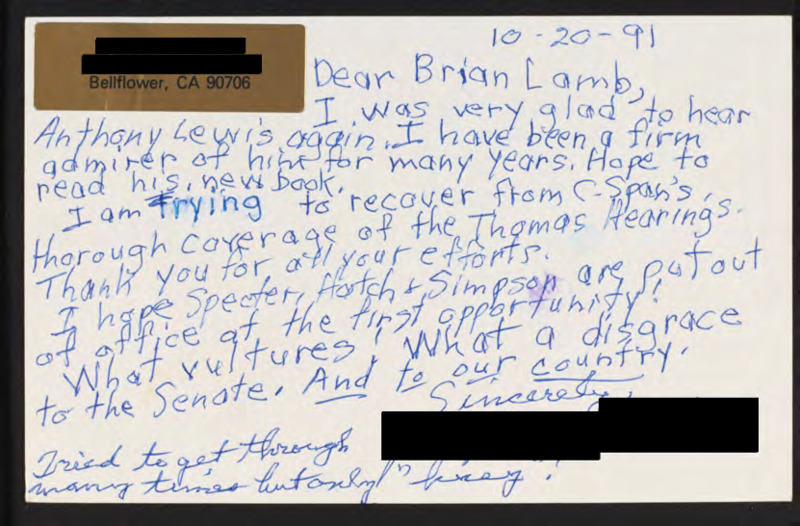 10-20-91
Bellflower, CA 90706
Dear Brian Lamb,
I was very glad to hear
Anthony Lewis again. I have been a firm
admirer of him for many years. Hope to
read his new book.
I am trying to recover from C-Span's
thorough coverage of the Thomas Hearings.
Thank you for all your efforts.
I hope Specter, Hatch & Simpson are put out
of office at the first opportunity!
What vultures! What a disgrace
to the Senate. And to our country.
Sincerely,
Tried to get through
many times but only "busy"!